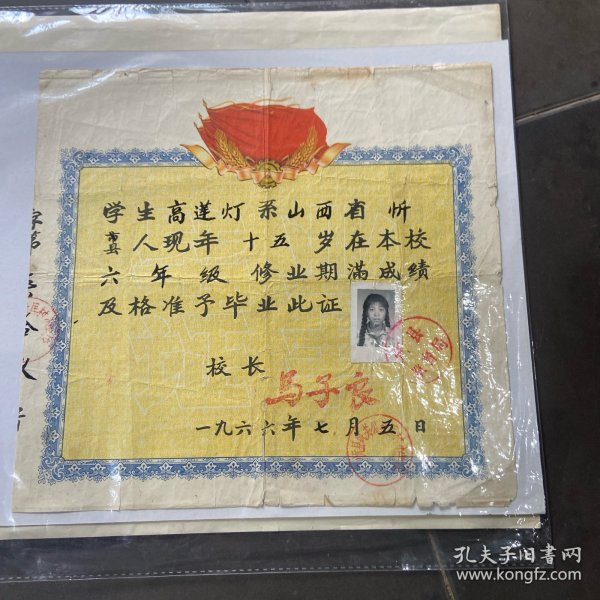 学生高莲灯系山西省忻
市县人现年十五岁在本校
六年级修业期满成绩
及格准予毕业此证
校长
马子良
一九六六年七月五日
孔夫子旧书网
www.kongfz.com